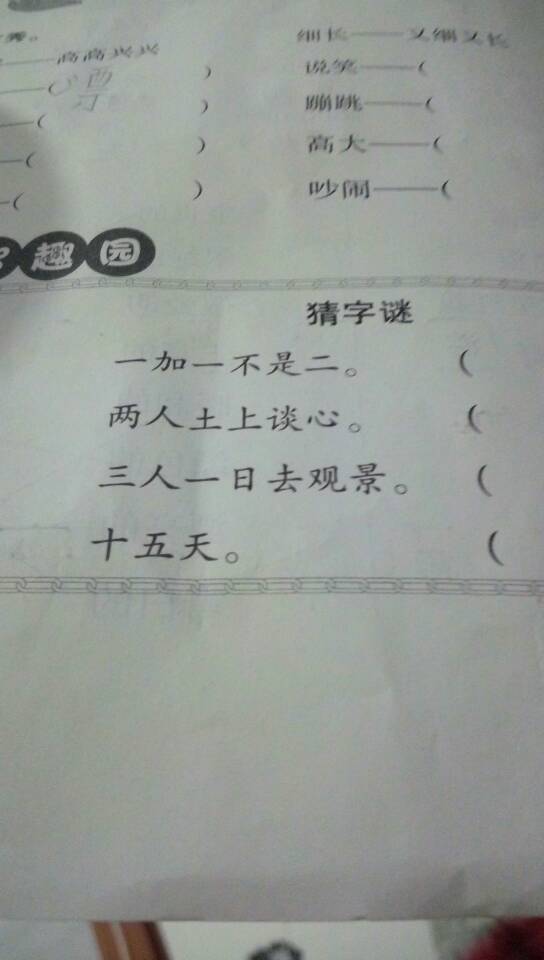 细长——又细又长
——高高兴兴
说笑——(
——( )
蹦跳——(
——( )
高大——(
——( )
吵闹——(
——( )
趣园
猜字谜
一加一不是二。 (
两人土上谈心。 (
三人一日去观景。 (
十五天。 (